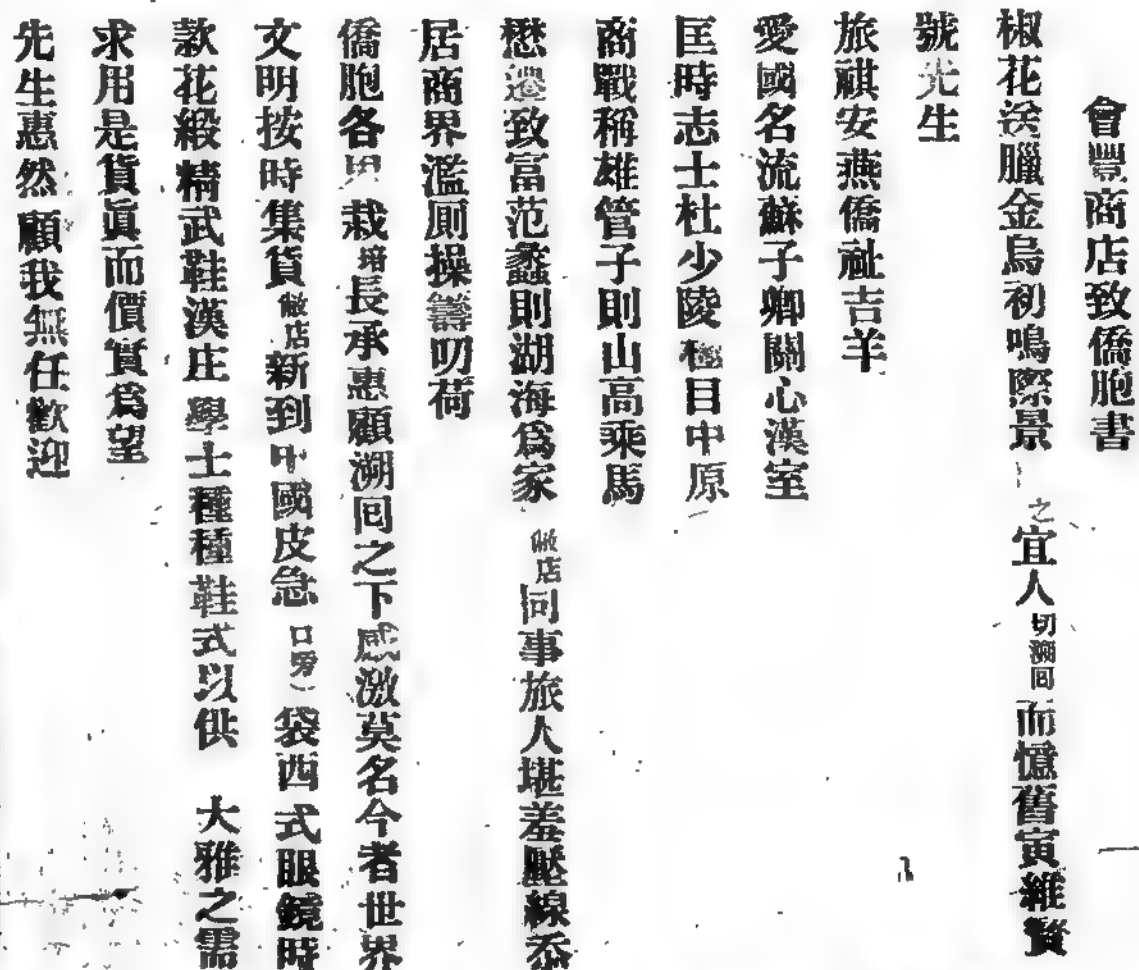 會豐商店致僑胞書
椒花送臘金烏初鳴際景之宜人切溯回而憶舊寅維賢
號先生
旅祺安燕僑祉吉羊
愛國名流蘇子卿關心漢室
匡時志士杜少陵極目中原
商戰稱雄管子則山高乘馬
懋遷致富范蠡則湖海爲家敝店同事旅人堪羞壓線忝
居商界濫厠操籌叨荷
僑胞各界栽培長承惠顧溯囘之下感激莫名今者世界
文明按時集貨敝店新到中國皮急口旁袋西式眼鏡時
款花緞精武鞋漢庄學士種種鞋式以供大雅之需
求用是貨眞而價實爲望
先生惠然顧我無任歡迎